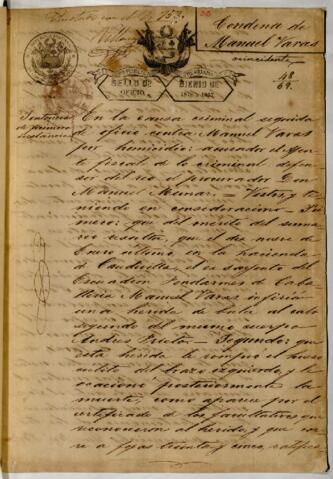 Condena de
Manuel Varas
reincidente
48
69.
SELLO DE OFICIO.
BIENIO DE
Sentencia
de primera
Instancia
En la causa criminal seguida
de oficio contra Manuel Varas
por homicidio: acusado el Agente
fiscal de lo criminal defensor
del reo el procurador Don
Manuel Munar. — Vistos, y te-
niendo en consideracion — Pri-
mero: que del mérito del suma-
rio resulta, que el dia nueve de
Enero último en la hacienda
de Caudivilla, el ex sargento del
Escuadron Jendarmes de Caba-
lleria Manuel Varas infirió
una herida de bala al cabo
segundo del mismo cuerpo
Andres Prieto — Segundo: que
esta herida le rompió el hueso
cúbito del brazo izquierdo, y le
ocacionó posteriormente la
muerte, como aparece por el
certificado de los facultativos que
reconocieron al herido, y que cor-
re a fojas treinta y cinco, ratifica